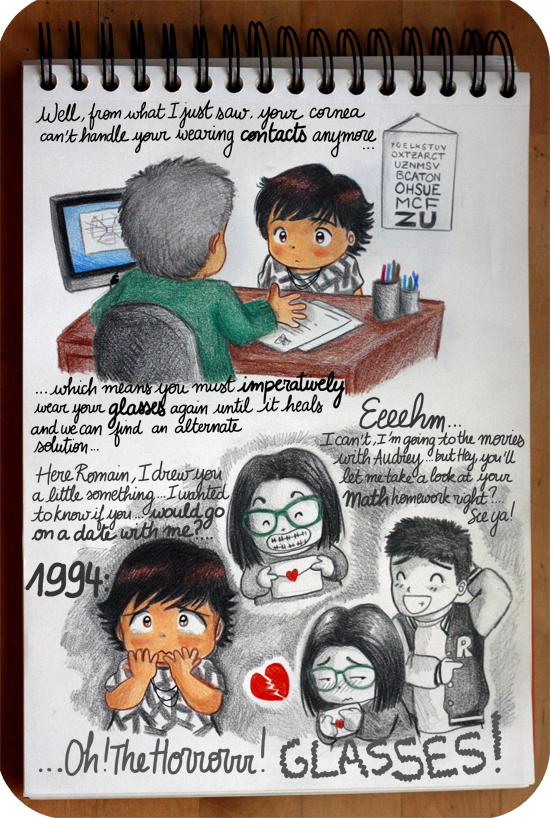 Well, from what I just saw, your cornea
can't handle your wearing contacts anymore
...
OXTZARCT
UZNMSV
BCATON
OHSUE
MCF
ZU
...which means you must imperatively
wear your glasses again until it heals
and we can find an alternate
solution...
Eeeehm...
I can't, I'm going to the movies
with Audrey...but Hey, you'll
let me take a look at your
Math homework right?...
See ya!
Here Romain, I drew you
a little something...I wanted
to know if you...would go
on a date with me?...
1994:
R
...Oh! The Horrorrr! GLASSES!